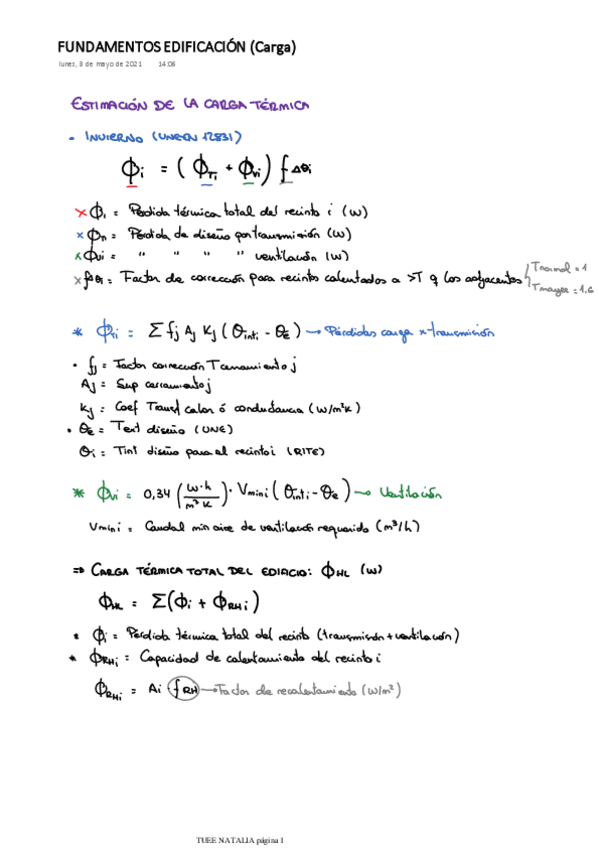 FUNDAMENTOS EDIFICACIÓN (Carga)
lunes, 3 de mayo de 2021 14:06
ESTIMACIÓN DE LA CARGA TÉRMICA
- INVIERNO (UNE EN 12831)
ϕi = (ϕTi + ϕVi) f Δθi
× ϕi = Pérdida térmica total del recinto i (W)
× ϕTi = Pérdida de diseño por transmisión (W)
× ϕVi = " " " " ventilación (W)
× fΔθi = Factor de corrección para recintos calentados a >T q los adyacentes
Tnormal = 1
Tmayor = 1.6
* ϕTi = Σ fj Aj Kj (θinti - θe) → Pérdidas carga x transmisión
• fj = Factor corrección Tcerramiento j
Aj = Sup cerramiento j
Kj = Coef Transf calor ó conductancia (W/m²K)
• θe = Text diseño (UNE)
θi = Tint diseño para el recinto i (RITE)
* ϕVi = 0,34 (W·h/m³K) · Vmini (θinti - θe) → Ventilación
Vmini = Caudal min aire de ventilación requerido (m³/h)
⇒ CARGA TÉRMICA TOTAL DEL EDIFICIO: ϕHL (W)
ϕHL = Σ(ϕi + ϕRHi)
* ϕi = Pérdida térmica total del recinto (transmisión + ventilación)
* ϕRHi = Capacidad de calentamiento del recinto i
ϕRHi = Ai fRH → Factor de recalentamiento (W/m²)
TUEE NATALIA página 1